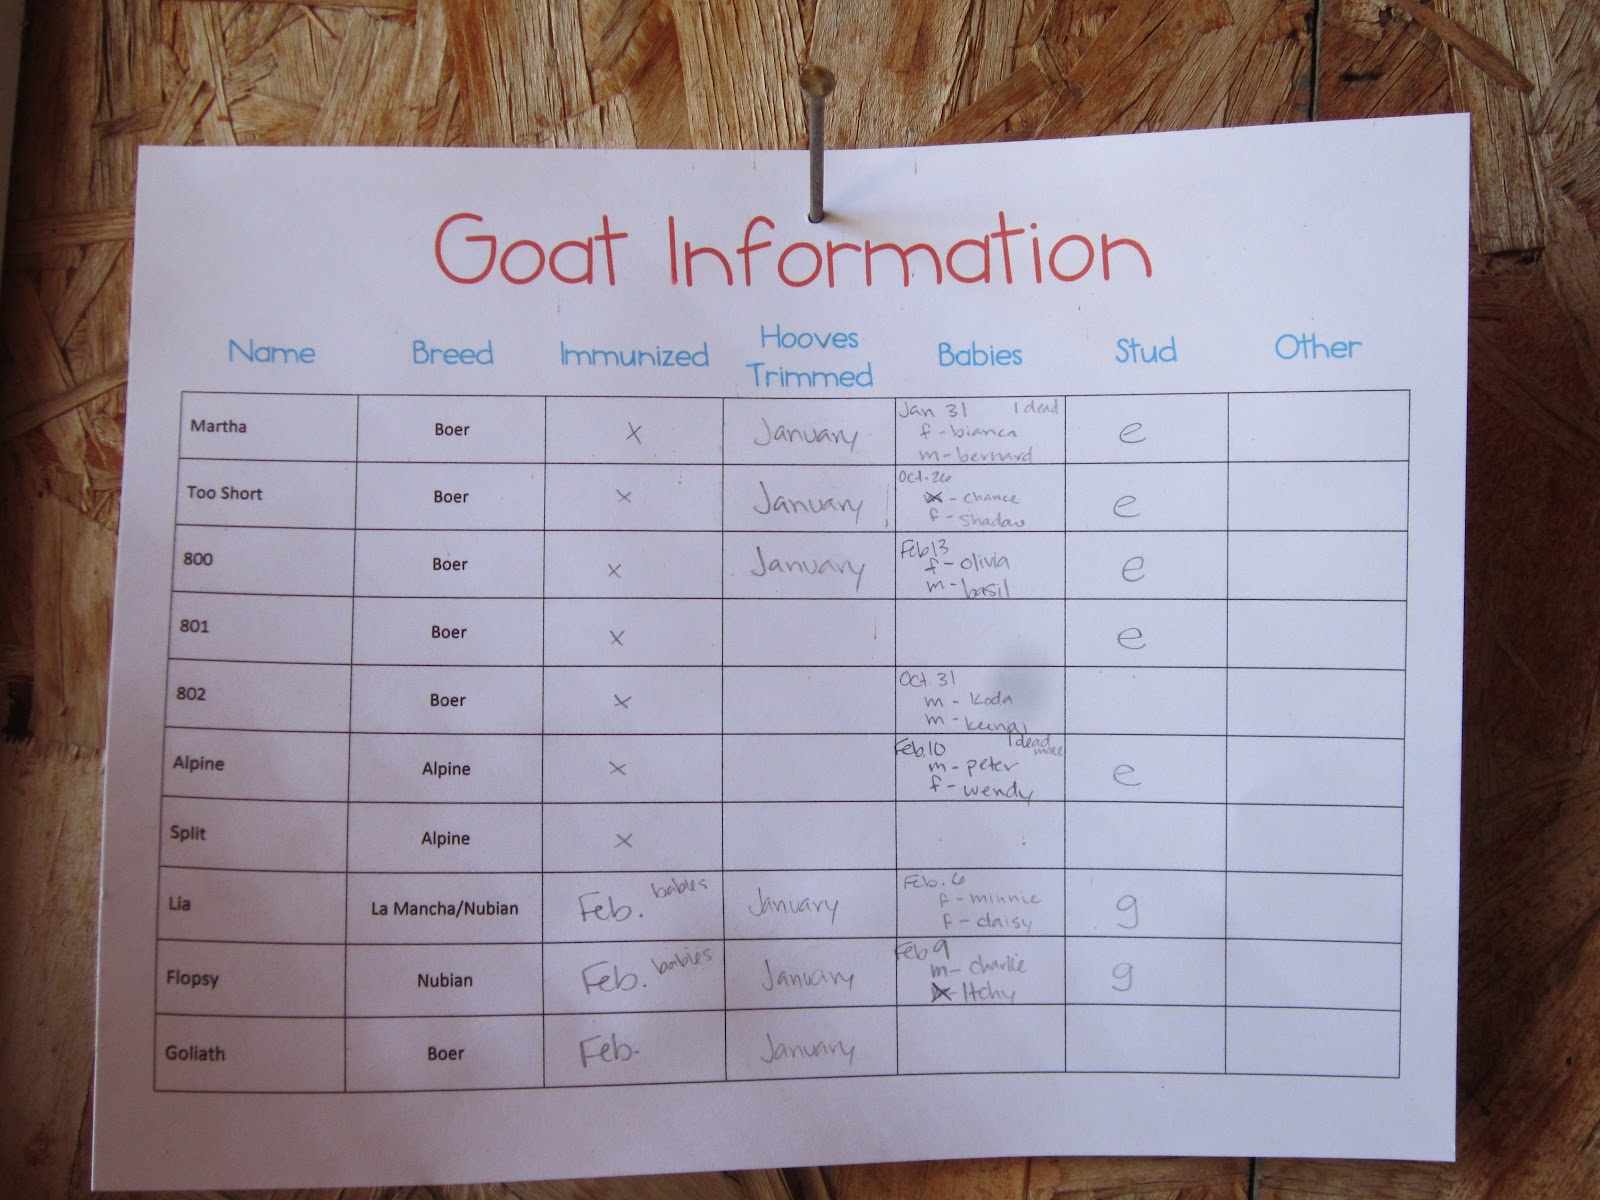 Goat Information
Name Breed Immunized Hooves Trimmed Babies Stud Other
Martha Boer x January Jan 31 1 dead e
f - bianca
m - bernard
Too Short Boer x January Oct. 26 e
- chance
f - shadow
800 Boer x January Feb 13 e
f - olivia
m - basil
801 Boer x e
802 Boer x Oct 31
m - koda
m -
Alpine Alpine x Feb. 10 1 dead male e
m - peter
f - wendy
Split Alpine x
Lia La Mancha/Nubian Feb. babies January Feb. 6 g
f - minnie
f - daisy
Flopsy Nubian Feb. babies January Feb 9 g
m - charlie
- Itchy
Goliath Boer Feb. January